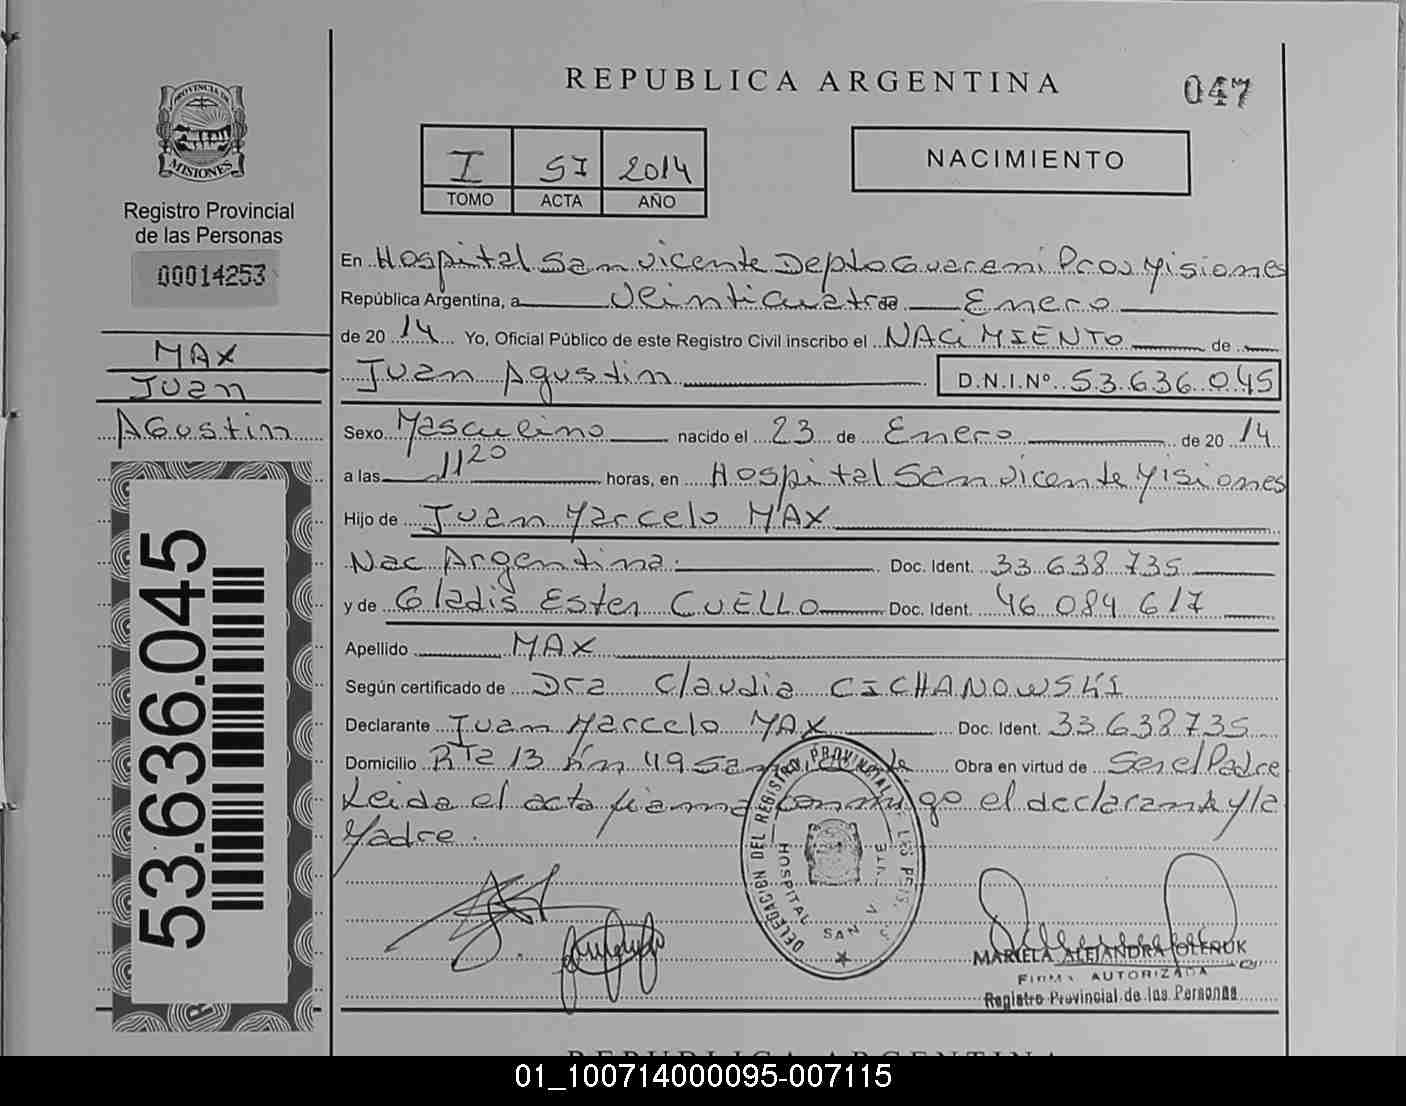 REPUBLICA ARGENTINA
047
PROVINCIA DE
MISIONES
Registro Provincial
de las Personas
00014253
MAX
Juan
AGustin
53.636.045
I 51 2014
TOMO ACTA AÑO
NACIMIENTO
En Hospital San Vicente Depto Guarani Prov Misiones
República Argentina, a Veinticuatro de Enero
de 2014 Yo, Oficial Público de este Registro Civil inscribo el NACIMIENTO de
Juan Agustin D.N.I.Nº 53.636.045
Sexo Masculino nacido el 23 de Enero de 2014
a las 11 20 horas, en Hospital San Vicente Misiones
Hijo de Juan Marcelo MAX
Nac Argentina Doc. Ident. 33.638.735
y de Gladis Ester CUELLO Doc. Ident. 46.084.617
Apellido MAX
Según certificado de Dra Claudia CICHANOWSKI
Declarante Juan Marcelo MAX Doc. Ident. 33.638.735
Domicilio Rta 13 Km 49 San Vicente Obra en virtud de Ser el Padre
Leida el acta firma conmigo el declarante y la
Madre.
DELEGACION DEL REGISTRO PROVINCIAL DE LAS PERS.
HOSPITAL SAN VICENTE
MARIELA ALEJANDRA OLENUK
FIRMA AUTORIZADA
Registro Provincial de las Personas
REPUBLICA ARGENTINA
01_100714000095-007115